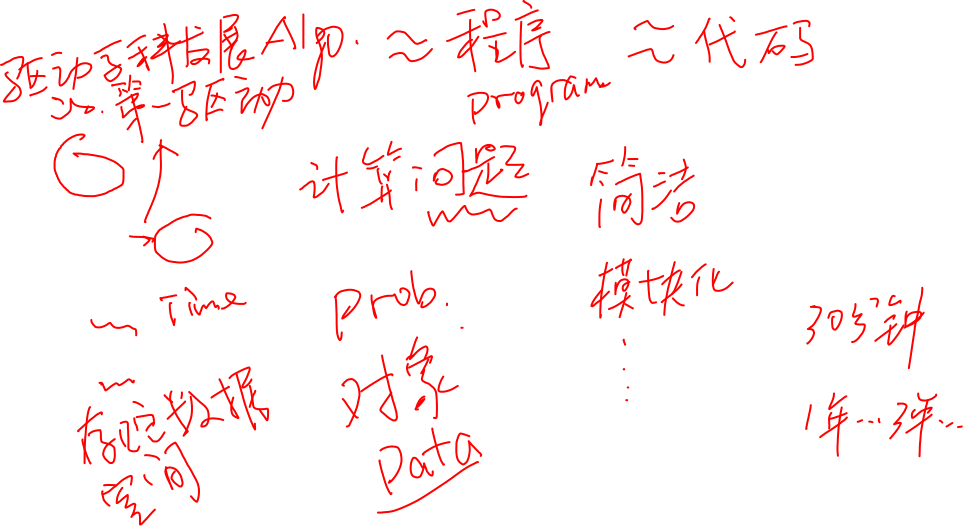 驱动学科发展 Algo. ≈ 程序 ≈ 代码
第一驱动 program
计算问题 简洁
Time Prob. 模块化 30分钟
存储数据 对象 1年...3年...
空间 Data